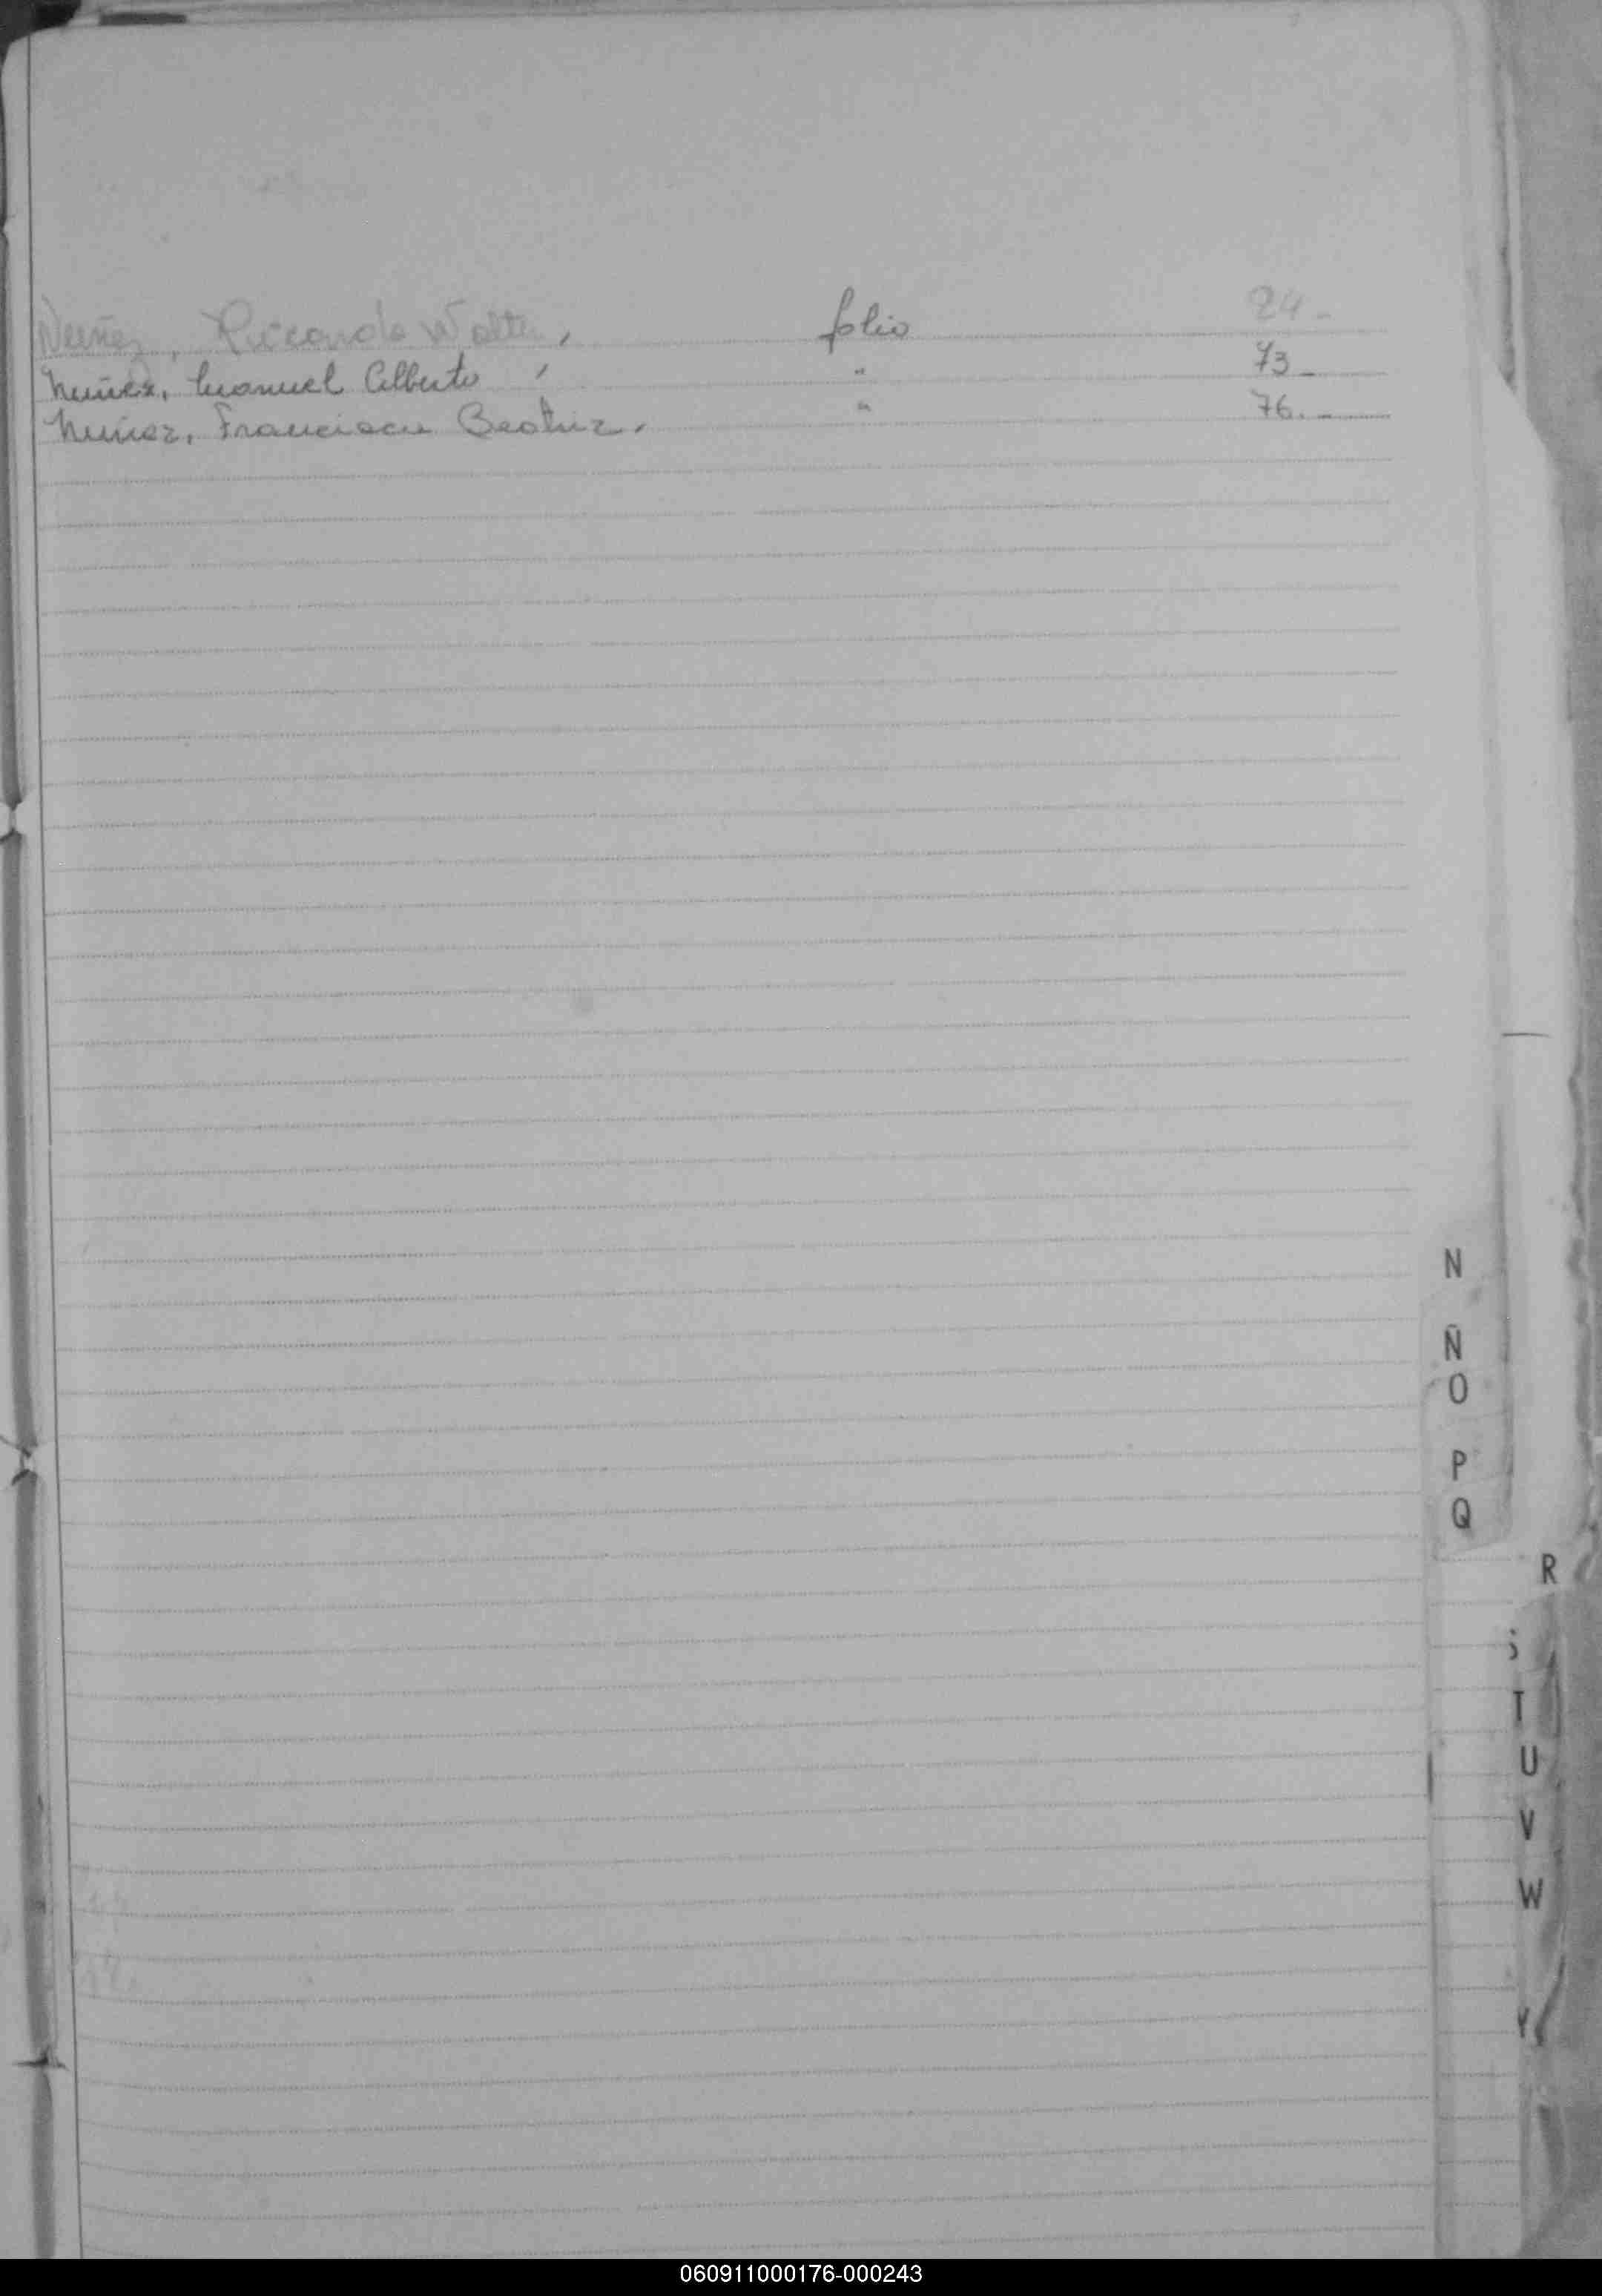 Nuñez, Riccardo Walter, folio 24.-
Nuñez, Manuel Alberto, " 73.-
Nuñez, Francisca Beatriz. " 76.-
N
Ñ
O
P
Q
R
S
T
U
V
W
Y
060911000176-000243